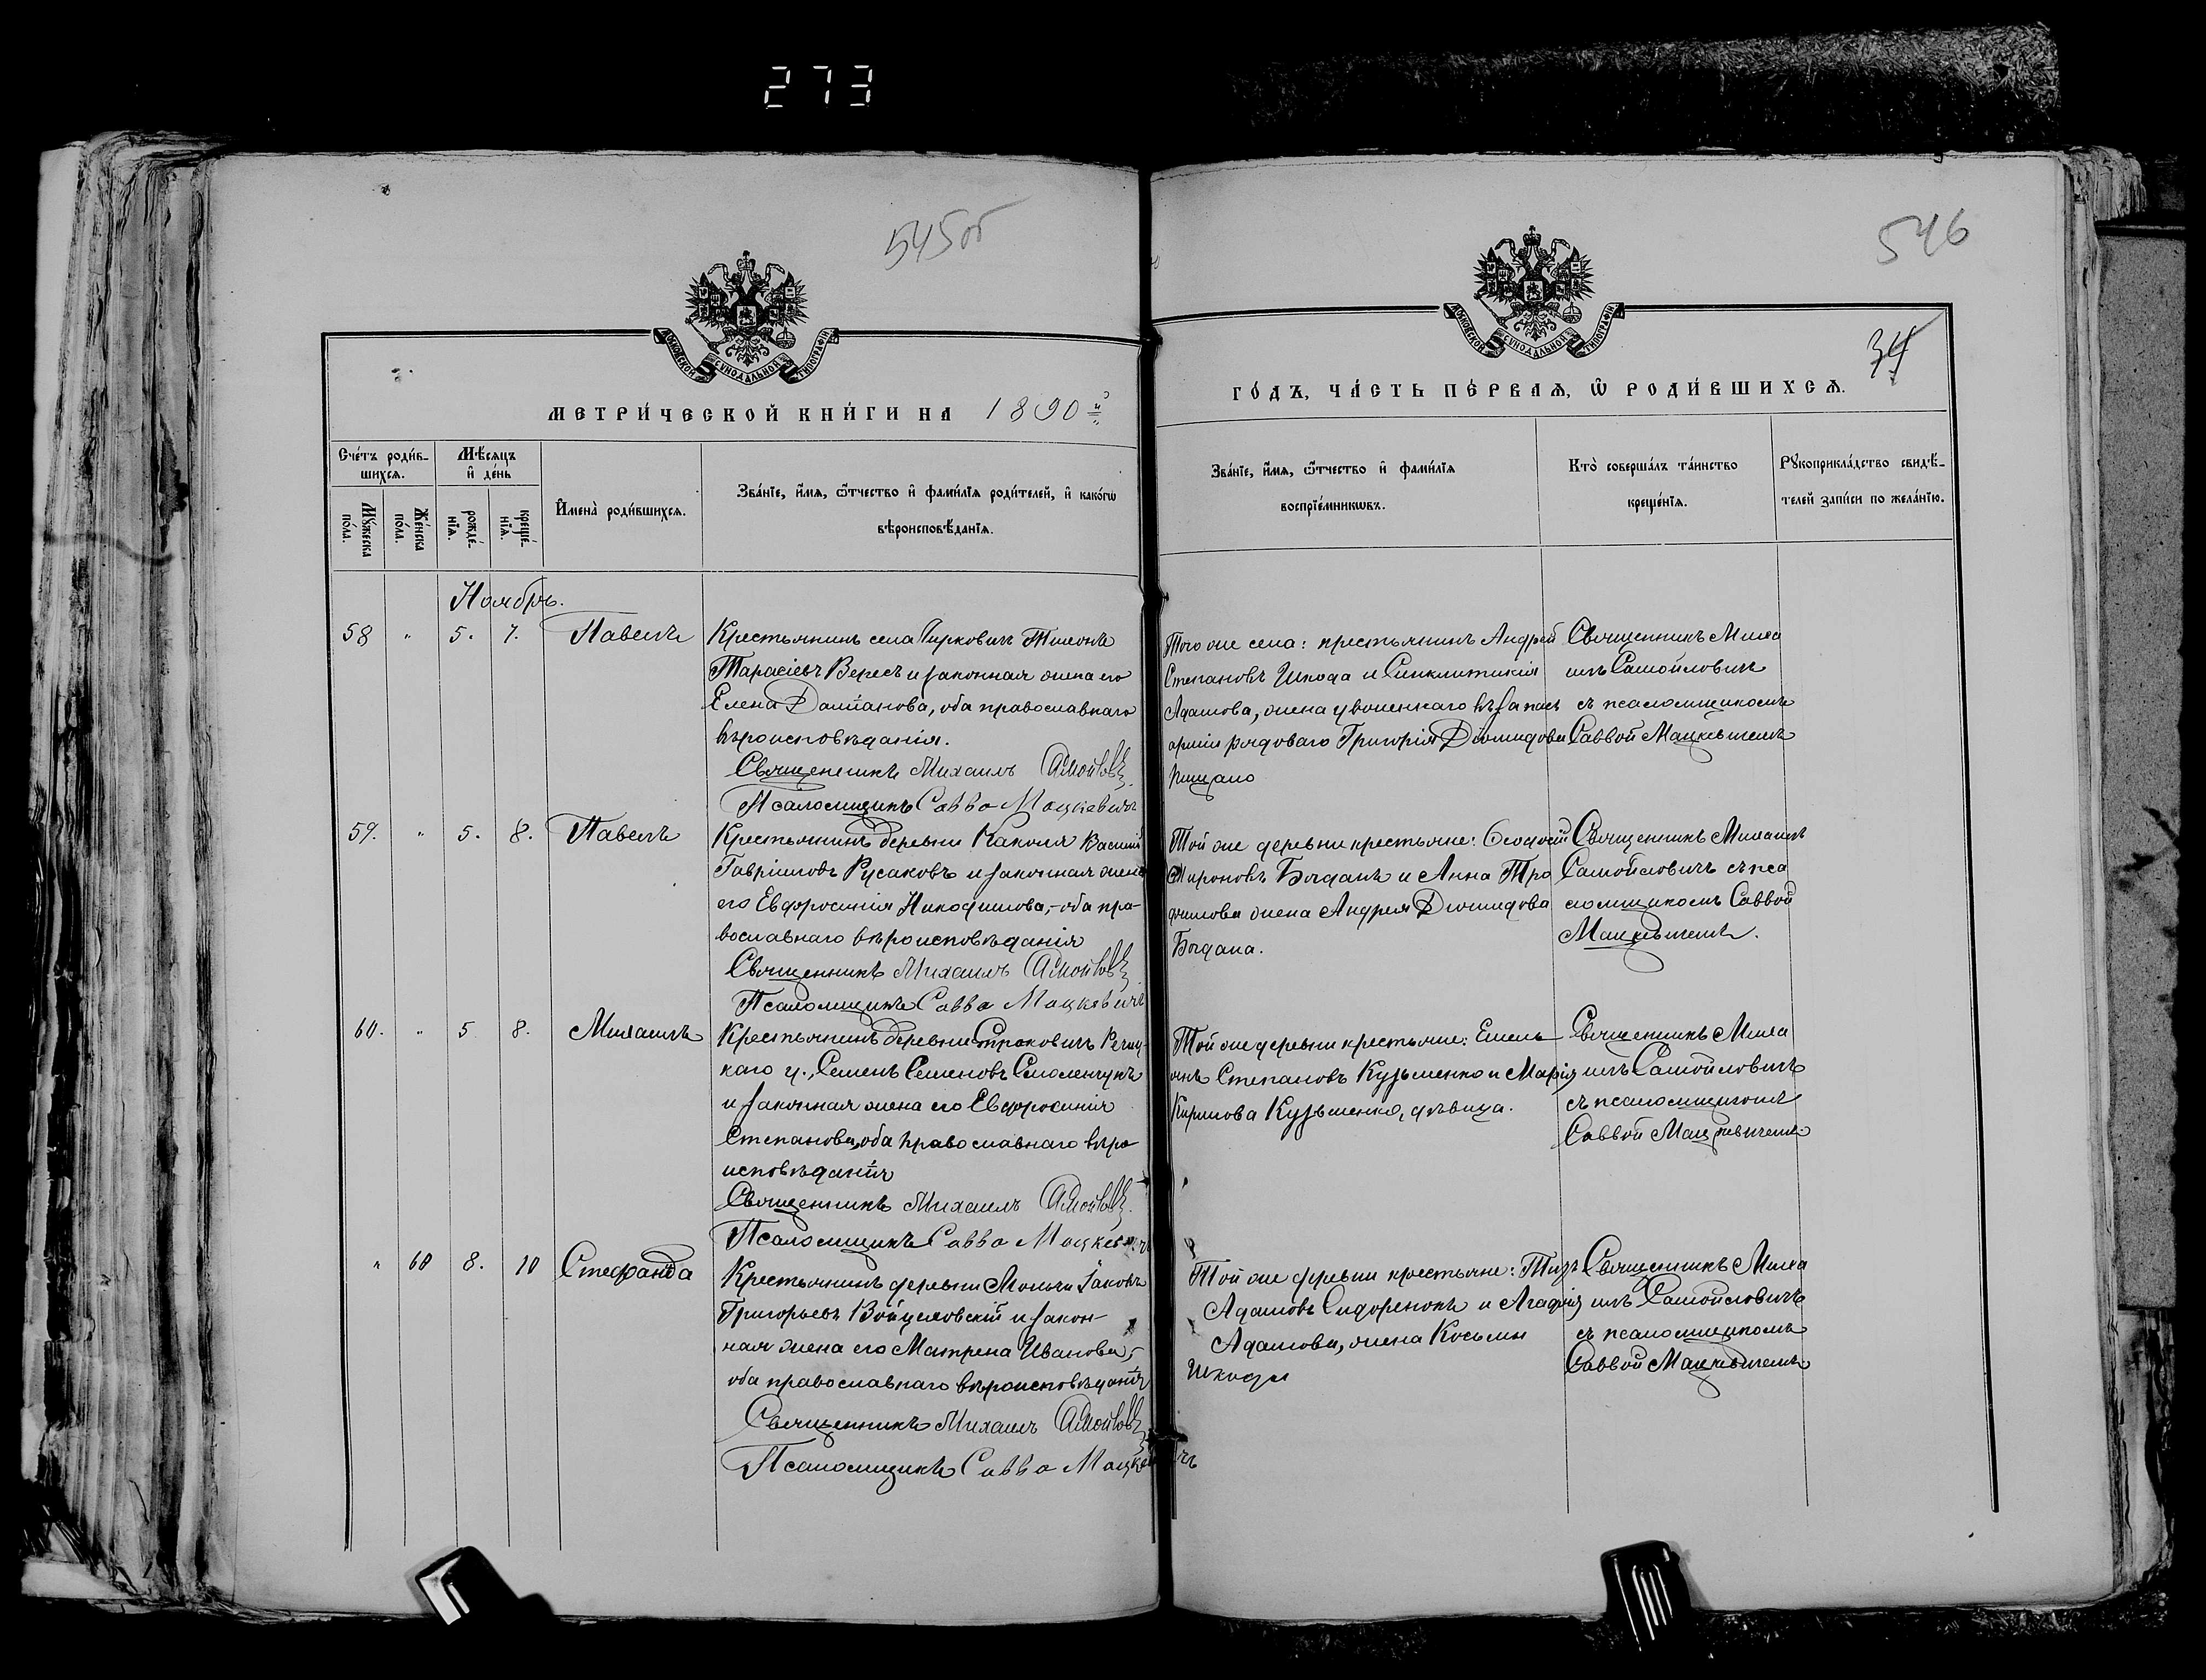 273
545об
546
34
МОСКОВСКОЙ СѴНОДАЛЬНОЙ ТИПОГРАФІИ
МОСКОВСКОЙ СѴНОДАЛЬНОЙ ТИПОГРАФІИ
МЕТРИ́ЧЕСКОЙ КНИ́ГИ НА 1890й
ГО́ДЪ, ЧА́СТЬ ПЕ́РВАѦ, Ѡ РОДИ́ВШИХСѦ.
Сче́тъ роди́в-
шихсѧ.
Мꙋ́жеска по́ла.
Же́нска по́ла.
Мѣ́сѧцъ
и҆ де́нь
рожде́-
нїѧ.
креще́-
нїѧ.
И҆мена̀ роди́вшихсѧ.
Зва́нїе, и҆́мѧ, ѻ҆́тчество и҆ фами́лїѧ роди́телей, и҆ како́гѡ
вѣроисповѣ́данїѧ.
Зва́нїе, и҆́мѧ, ѻ҆́тчество и҆ фами́лїѧ
воспрїе́мникѡвъ.
Кто̀ соверша́лъ та́инство
креще́нїѧ.
Рꙋкоприкла́дство свидѣ́-
телей за́писи по жела́нїю.
Ноябрь.
58 " 5. 7. Павелъ
Крестьянинъ села Тимонъ
Тарасіевъ Вересъ и законная жена его
Елена Даміанова, оба православнаго
вѣроисповѣданія.
Священникъ Михаилъ Самойловичъ
Псаломщикъ Савва Мацкевичъ
Того же села: крестьянинъ Андрей
Степановъ Шкода и Синклитикія
Адамова, жена уволеннаго въ запасъ
арміи рядоваго Григорія Діомидова
Священникъ Миха
илъ Самойловичъ
съ псаломщикомъ
Саввой Мацкевичемъ
59. " 5. 8. Павелъ
Крестьянинъ деревни Каколя Василій
Гавріиловъ Русаковъ и законная жена
его Евфросинія Никодимова,- оба пра-
вославнаго вѣроисповѣданія
Священникъ Михаилъ Самойловичъ
Псаломщикъ Савва Мацкевичъ
Той же деревни крестьяне: Ѳеодосій
Мироновъ Богданъ и Анна Тро
фимова жена Андрея Діомидова
Богдана.
Священникъ Михаилъ
Самойловичъ съ пса
ломщикомъ Саввой
Мацкевичемъ.
60. " 5 8. Михаилъ
Крестьянинъ деревни Речиц-
каго у., Семенъ Семеновъ Смоленчукъ
и законная жена его Евфросинія
Степанова, оба православнаго вѣро
исповѣданія
Священникъ Михаилъ Самойловичъ
Псаломщикъ Савва Мацкевичъ
Той же деревни крестьяне: Емель
янъ Степановъ Кузьменко и Марія
Кирилова Кузьменко, дѣвица.
Священникъ Миха
илъ Самойловичъ
съ псаломщикомъ
Саввой Мацкевичемъ
" 60 8. 10 Стефанида
Крестьянинъ деревни Мольчи Іаковъ
Григорьевъ Войцеховскій и закон-
ная жена его Матрена Иванова,-
оба православнаго вѣроисповѣданія
Священникъ Михаилъ Самойловичъ
Псаломщикъ Савва Мацкевичъ
Той же деревни крестьяне: Титъ
Адамовъ Сидоренокъ и Агафія
Адамова, жена Косьмы
Шкоды
Священникъ Миха
илъ Самойловичъ
съ псаломщикомъ
Саввой Мацкевичемъ